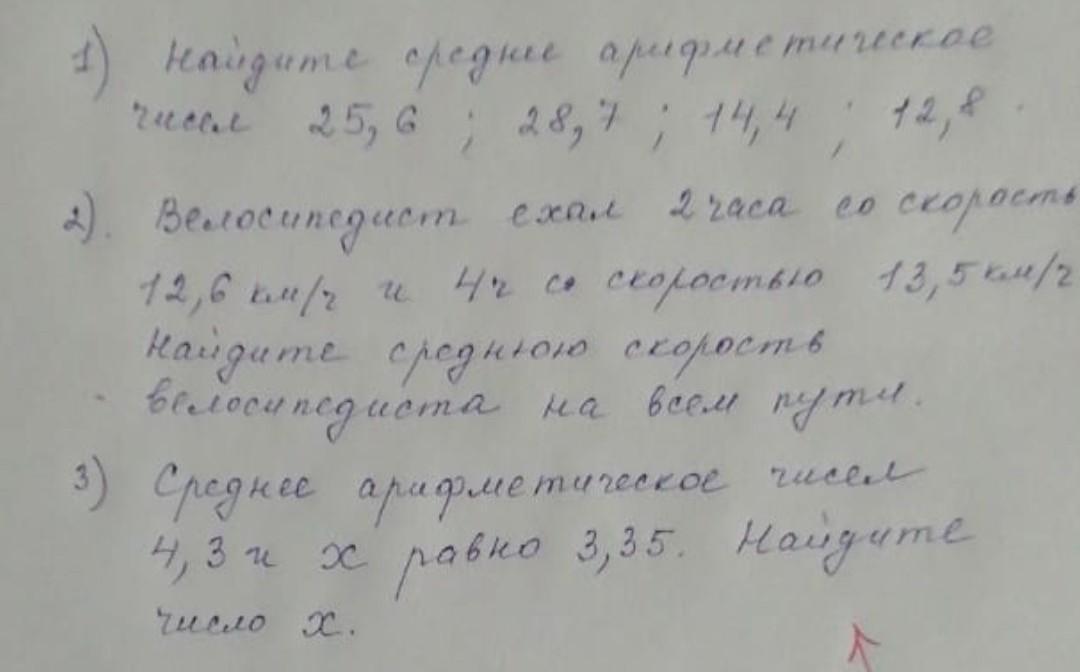 1) Найдите среднее арифметическое
чисел 25,6 ; 28,7 ; 14,4 ; 12,8 .
2). Велосипедист ехал 2 часа со скорость
12,6 км/ч и 4ч со скоростью 13,5 км/ч
Найдите среднюю скорость
велосипедиста на всем пути.
3) Среднее арифметическое чисел
4,3 и x равно 3,35. Найдите
число x.